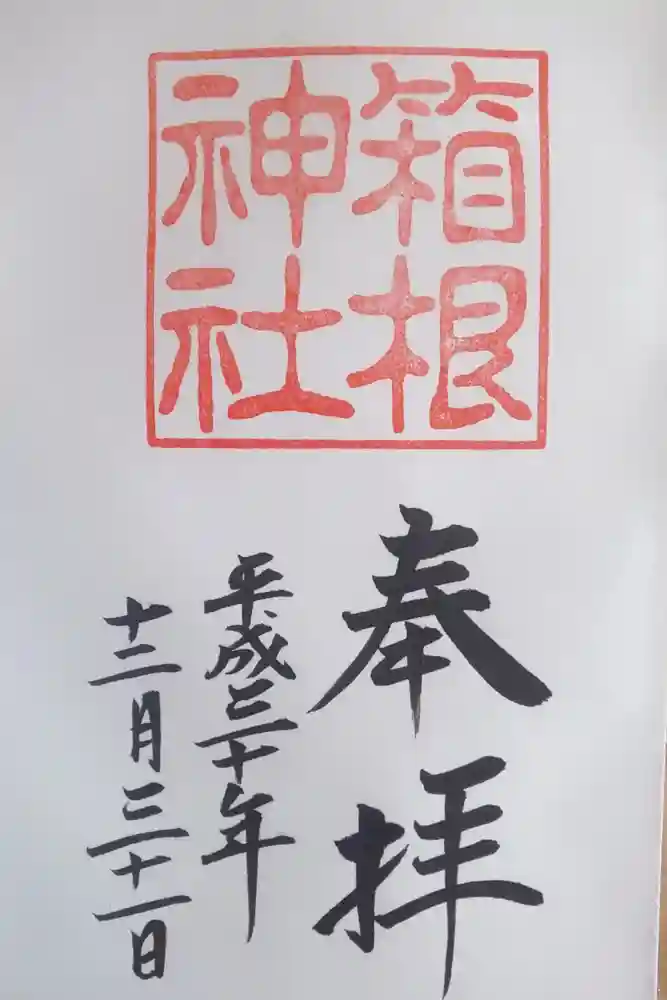 箱根
神社
奉拝
平成三十年
十二月三十一日